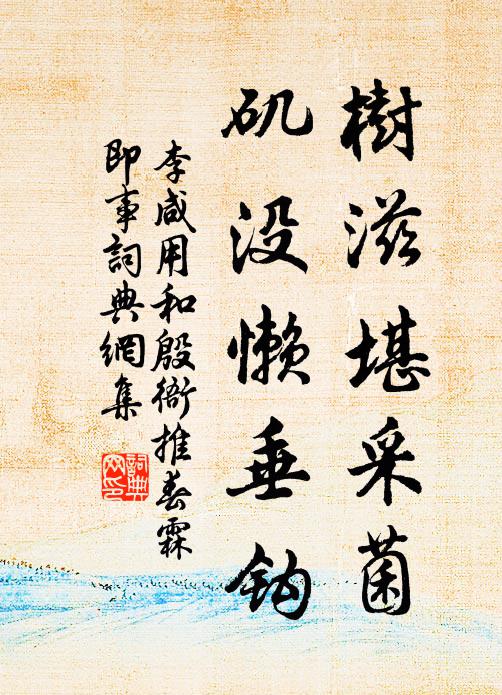 樹滋堪采菌
矶没懒垂钩
李咸用和殷衙推春霖
即事詞典網集
詞典网印